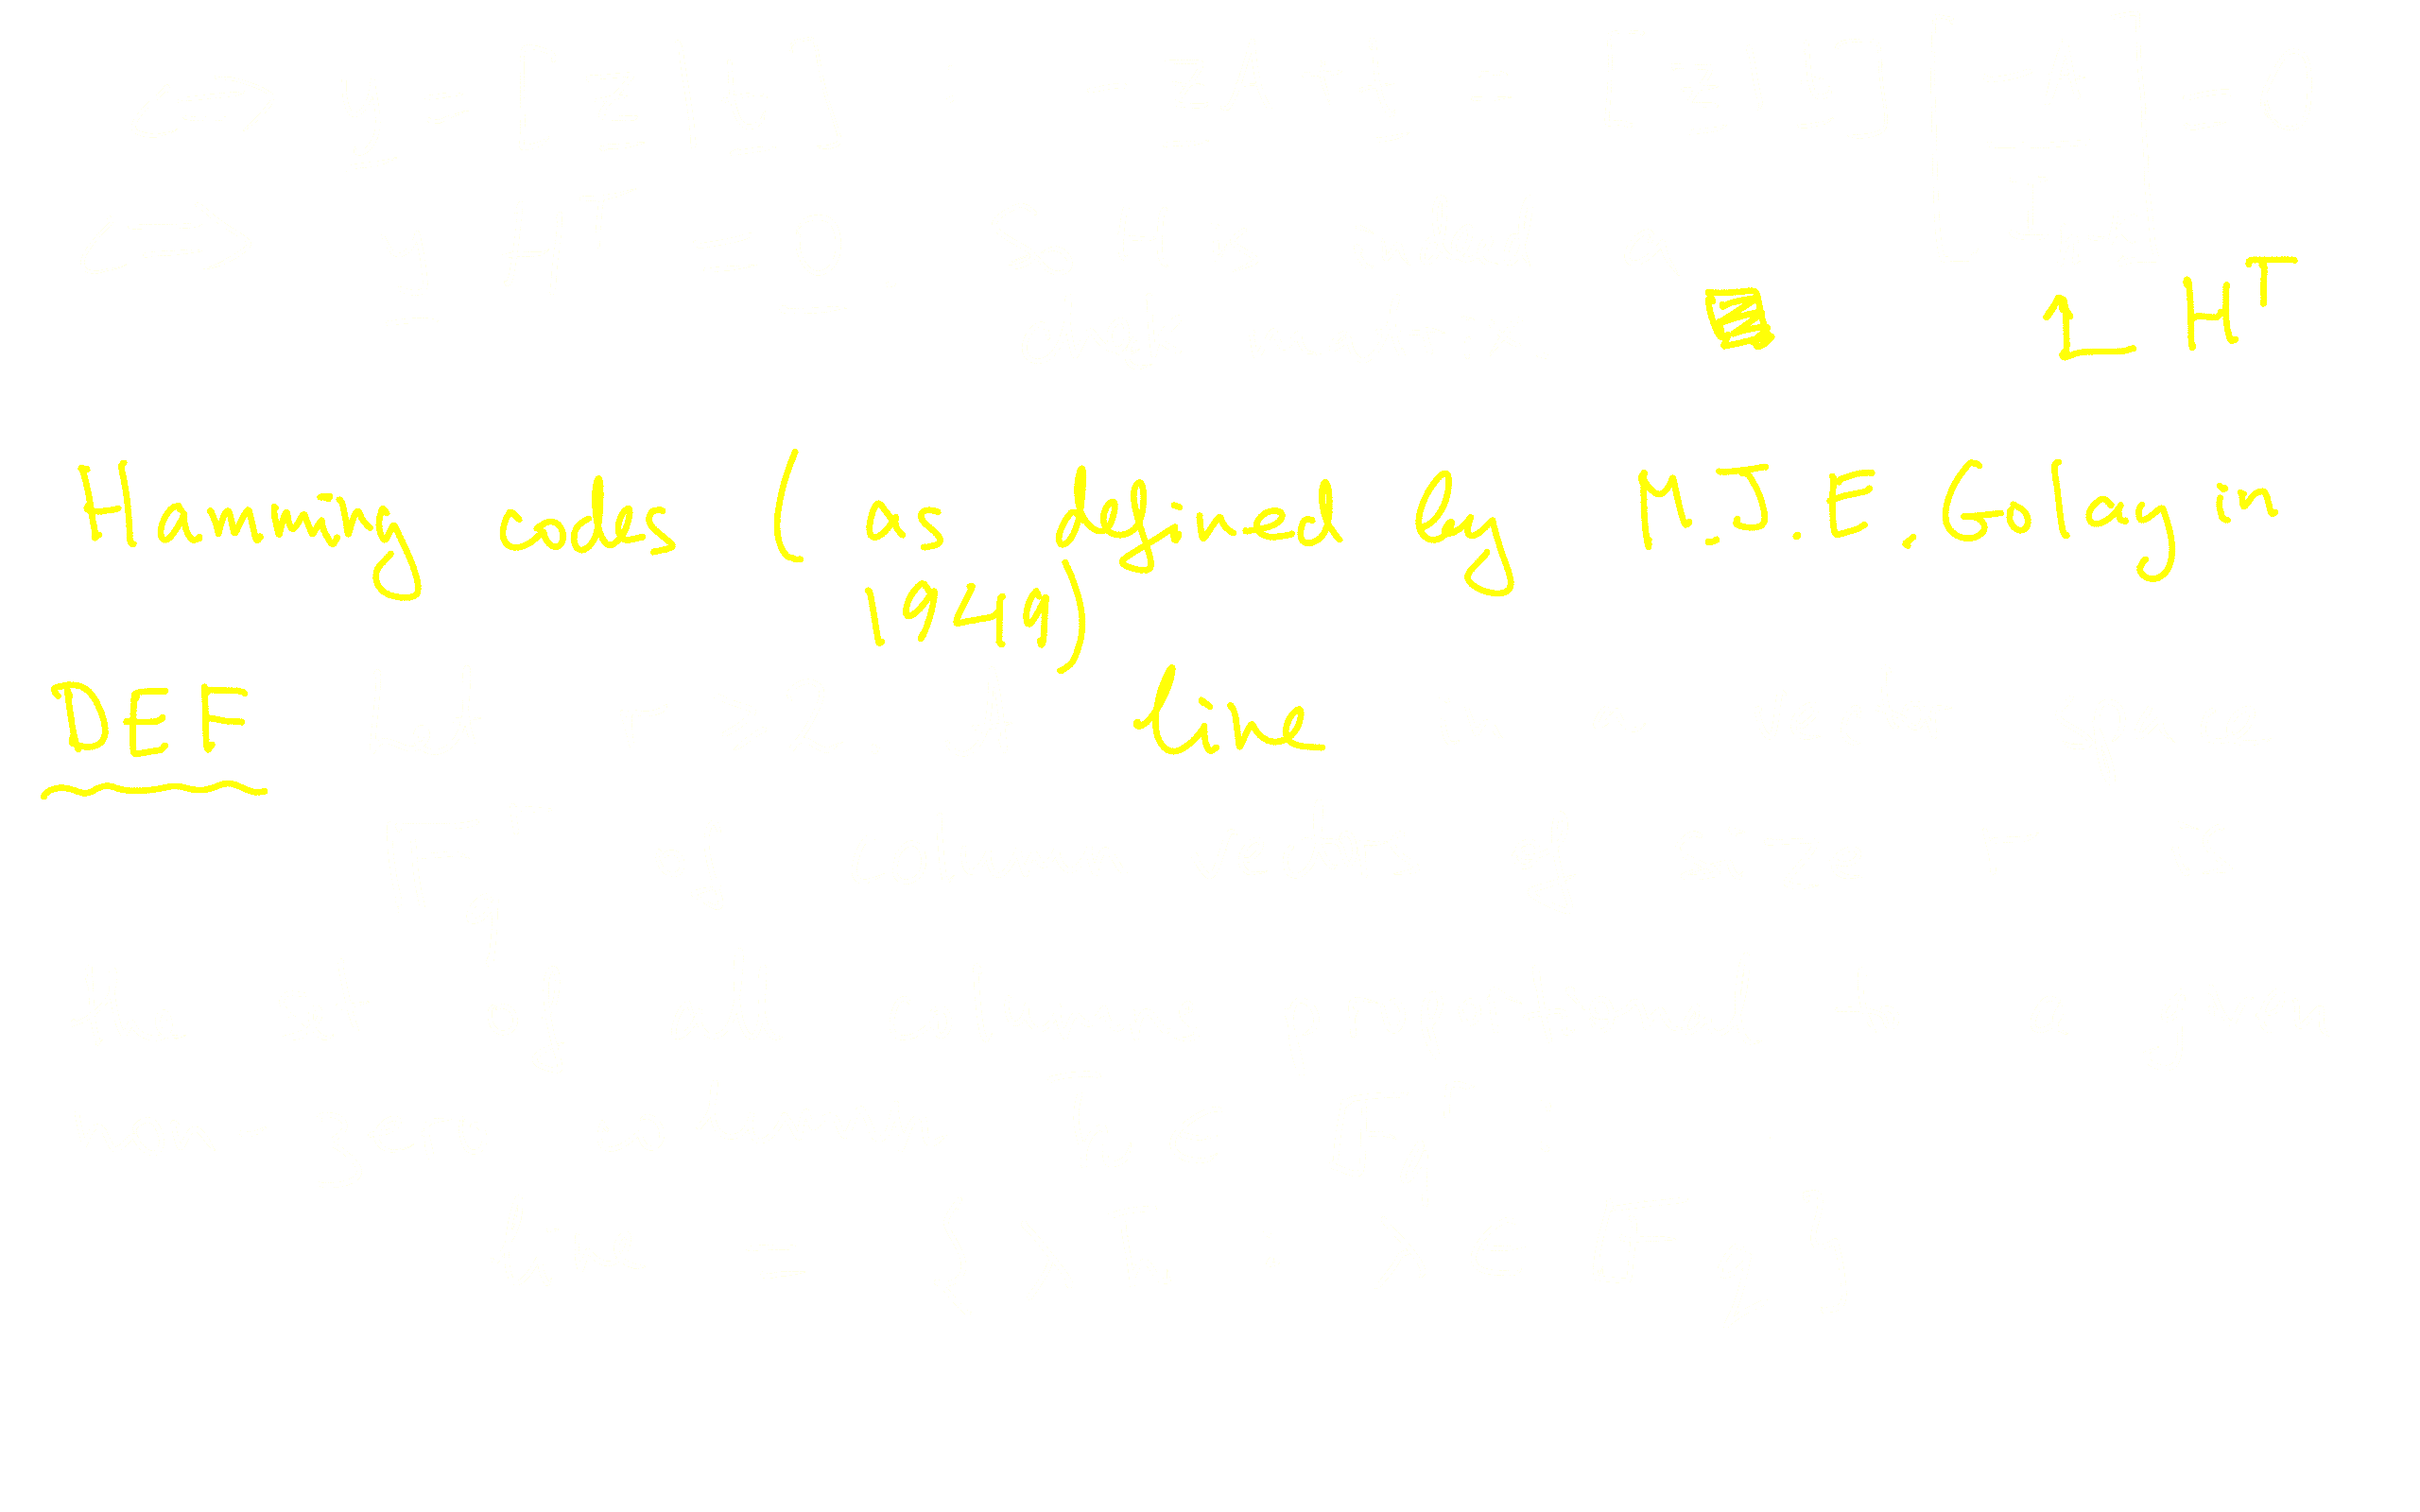 1 H^T
Hamming codes ( as defined by M.J.E. Golay in
1949)
DEF line